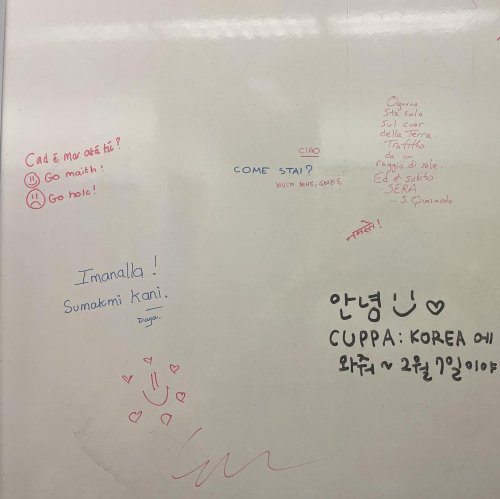 Cad é mar atá tú?
Go maith!
Go holc!
CIAO
COME STAI?
MOLTO BENE, GRAZIE.
Ognuno
Sta solo
Sul cuor
della Terra
Trafitto
da un
raggio di sole
Ed è subito
SERA
— S. Quasimodo
नमस्ते!
Imanalla!
Sumakmi Kani.
안녕
CUPPA: KOREA 에
와줘~ 2월 7일이야